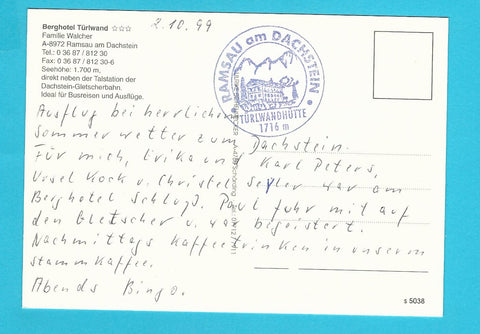 Berghotel Türlwand ☆☆☆
Familie Walcher
A-8972 Ramsau am Dachstein
Tel.: 0 36 87 / 812 30
Fax: 0 36 87 / 812 30-6
Seehöhe: 1.700 m,
direkt neben der Talstation der
Dachstein-Gletscherbahn.
Ideal für Busreisen und Ausflüge.
2.10.99
RAMSAU am DACHSTEIN
TÜRLWANDHÜTTE
1716 m
Ausflug bei herrlichem
Sommerwetter zum Dachstein.
Für mich, Erika und Karl Peters,
Ursel Kock u. Christel Seyler war am
Berghotel Schluß. Paul fuhr mit auf
den Gletscher u. war begeistert.
Nachmittags Kaffeetrinken in unserm
Stammkaffee.
Abends Bingo.
s 5038